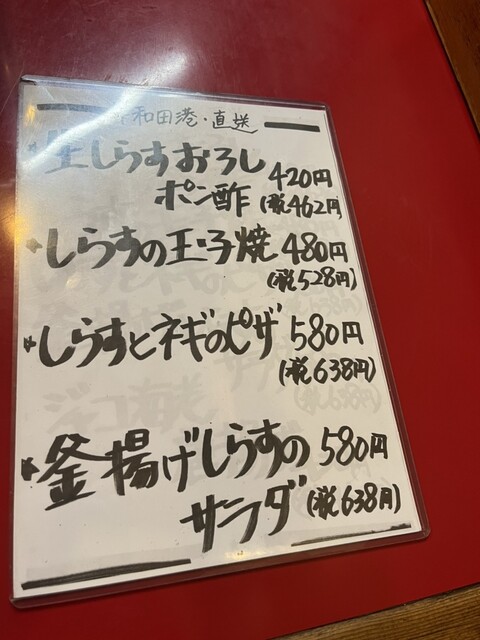 和田港・直送
生しらすおろし
ポン酢 420円
(税462円
しらすの玉子焼 480円
(税528円)
しらすとネギのピザ 580円
(税638円)
釜揚げしらすの 580円
サラダ (税638円)